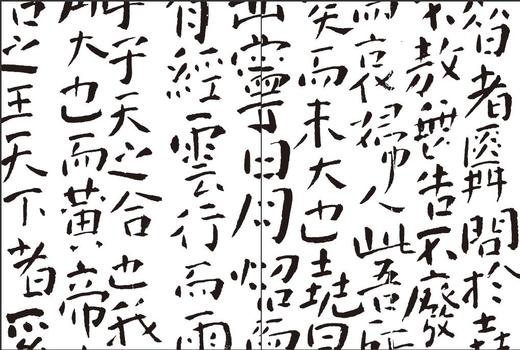 昔者舜問於堯
不敖無告不廢
而哀婦人此吾所
矣而未大也堯曰
出寧日月炤而
有經雲行而雨
乎子天之合也我
所大也而黃帝
古之王天下者奚